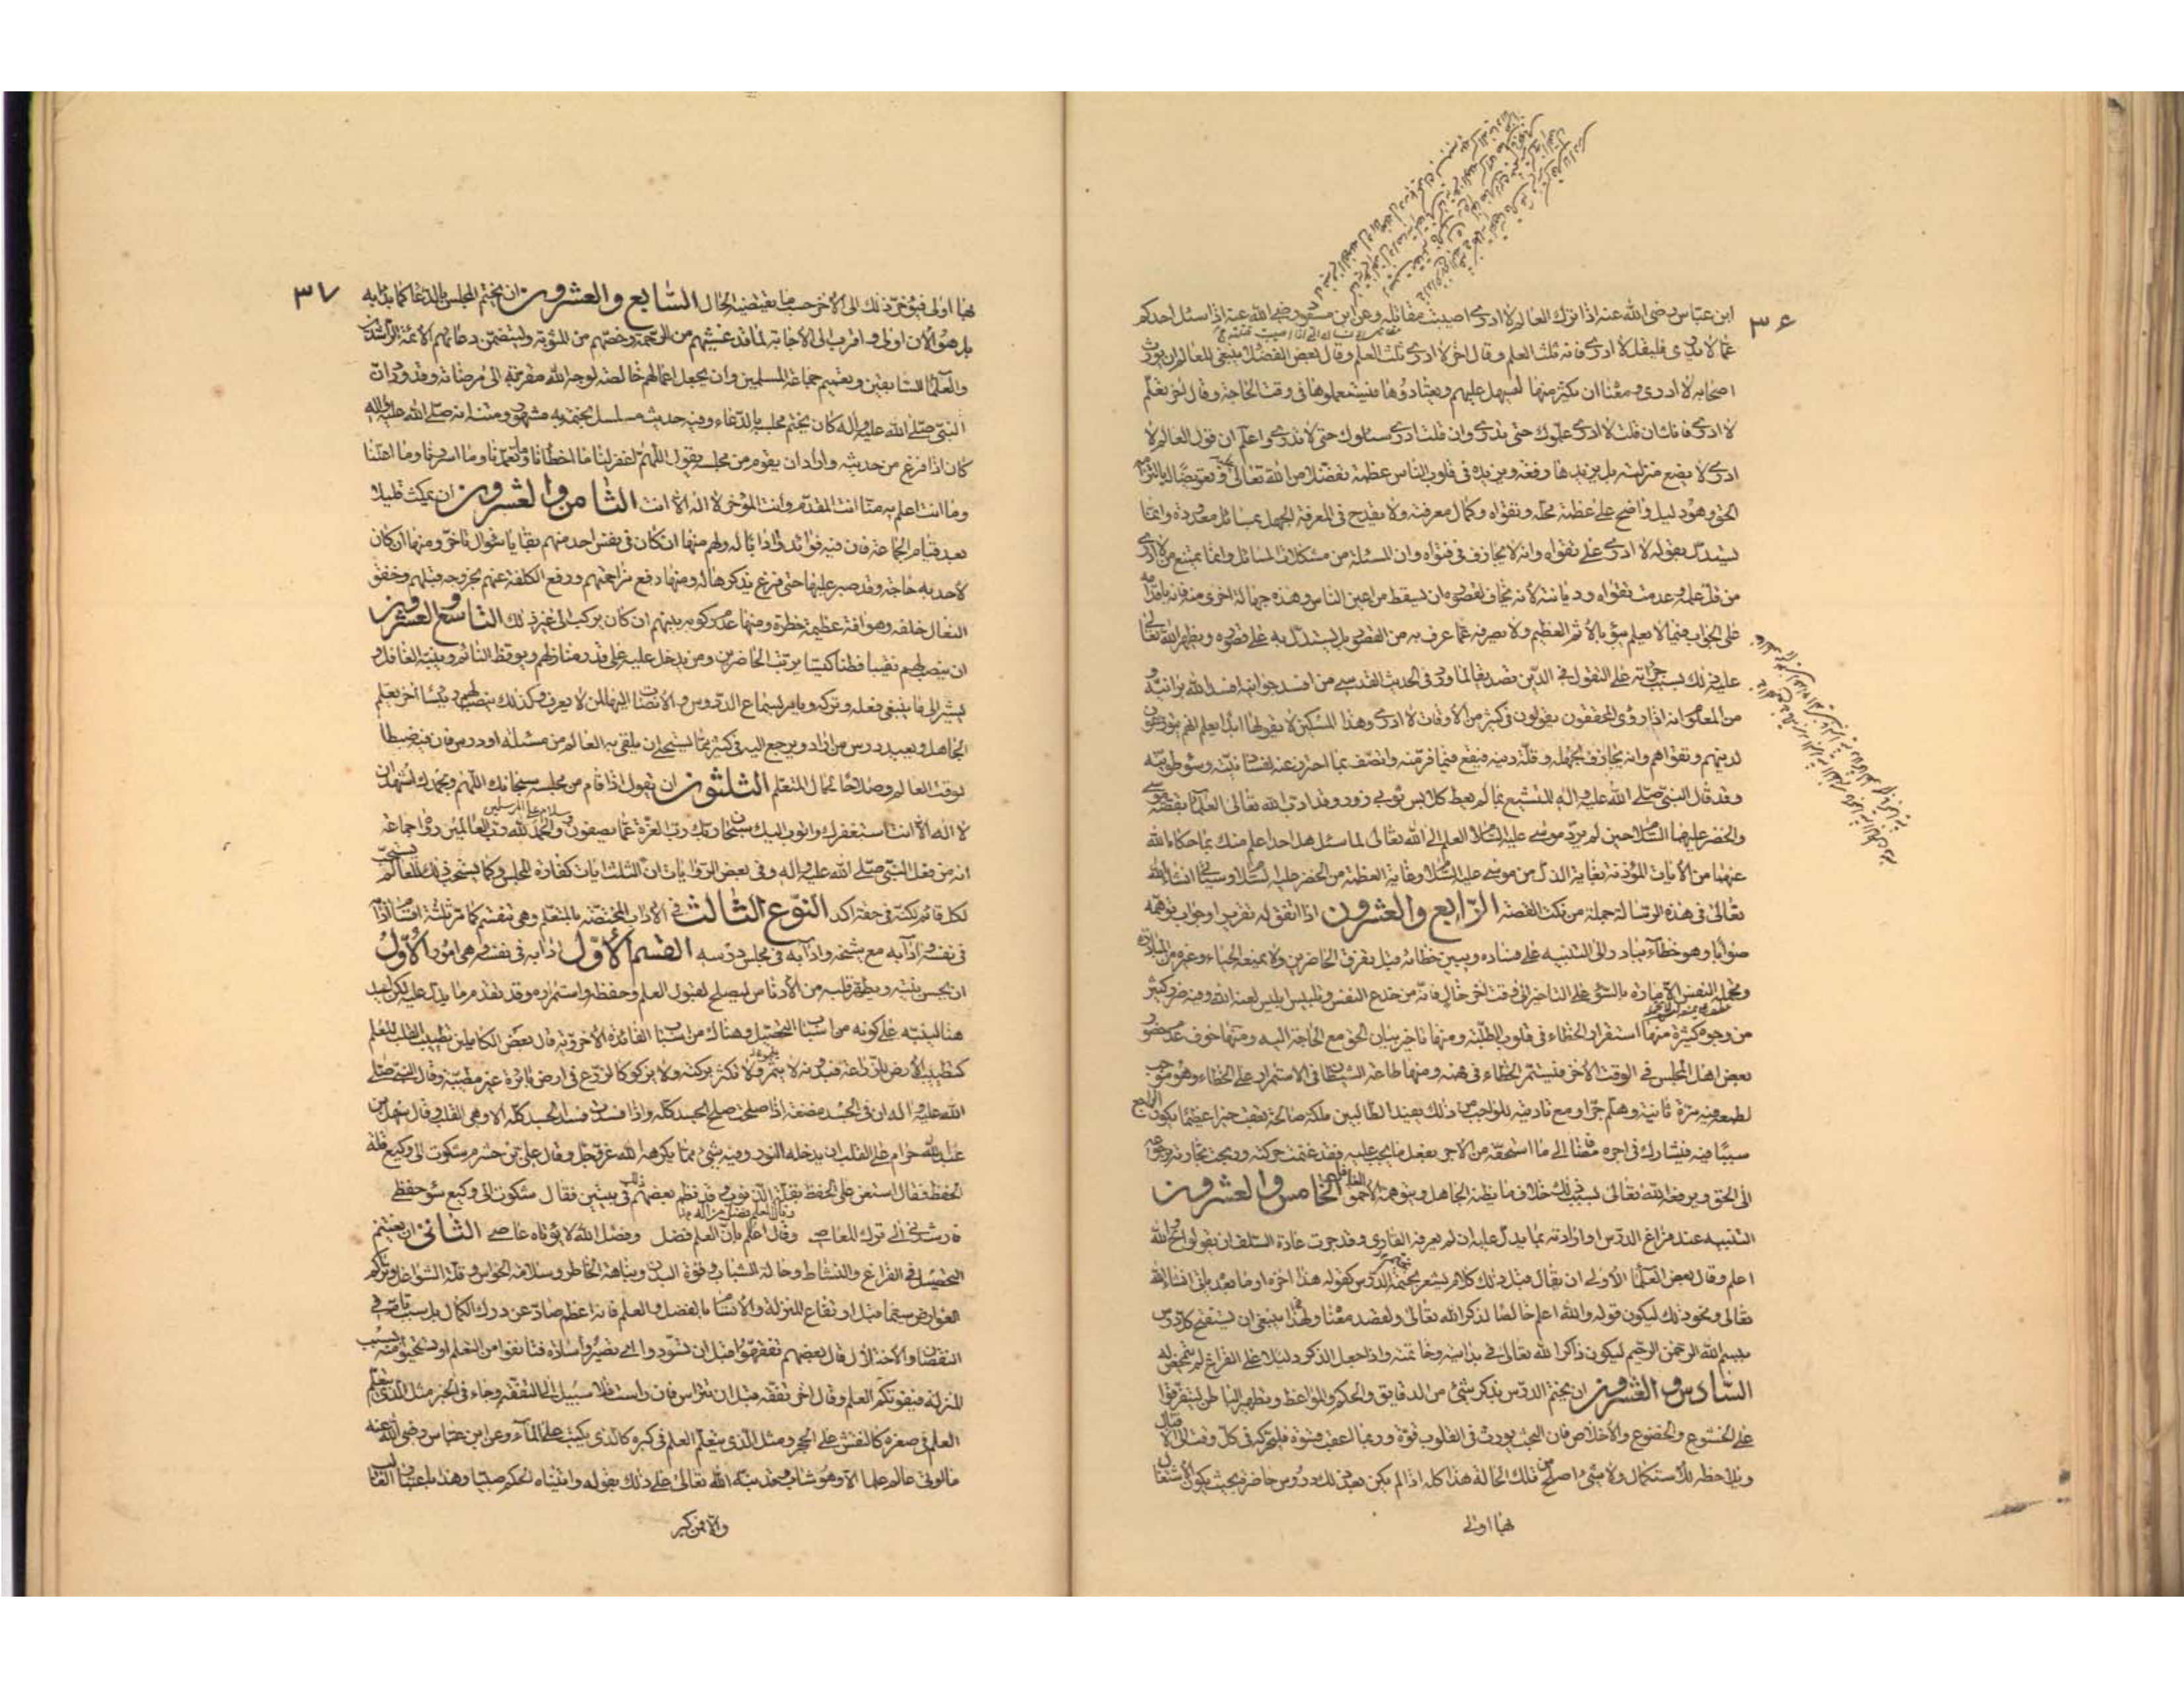 ٣۶
ابن عبّاس رضى الله عنه اذا ترك العالم لا ادرى اصيبت مقاتله وعن ابن مسعود رضى الله عنه اذا سئل احدكم
عما لا يدرى فليقل لا ادرى فانه ثلث العلم وقال اخر لا ادرى ثلث العلم وقال بعض الفضلاء ينبغى للعالم ان يورث
اصحابه لا ادرى ومعناه ان يكثر منها لتسهل عليهم ويعتادوها فيستعملوها فى وقت الحاجة وقال اخر تعلّم
لا ادرى فانك ان قلت لا ادرى علّموك حتى تدرى وان قلت ادرى سئلوك حتى لا تدرى واعلم ان قول العالم لا
ادرى لا يضع منزلته بل يزيدها رفعة ويزيده فى قلوب الناس عظمة تفضلا من الله تعالى وتعويضا له بالتزامه
الحق وهو دليل واضح على عظمة محلّه وتقواه وكمال معرفته ولا يقدح فى المعرفة الجهل بمسائل معدودة وانما
يستدل بقوله لا ادرى على تقواه وانه لا يجازف فى فتواه وان المسئلة من مشكلات المسائل وانما يمتنع من لا ادرى
من قل علمه وعدمت تقواه وديانته لانه يخاف لقصوره ان يسقط من اعين الناس وهذه جهالة اخرى منه فانه باقدامه
على الجواب فيما لا يعلم يبوء بالاثم العظيم ولا يصرفه عما عرف به من القصور بل يستدل به على قصوره ويظهر الله تعالى
عليه ذلك بسبب جرأته على التقول فى الدين تصديقا لما ورد فى الحديث القدسى من افسد جوانيه افسد الله برانيه و
من المعلوم انه اذا رؤى المحققون يقولون فى كثير من الاوقات لا ادرى وهذا المسكين لا يقولها ابدا يعلم انهم يتورعون
لدينهم وتقواهم وانه يجازف لجهله وقلة دينه فيقع فيما فر منه واتصف بما احترز عنه لفساد نيته وسوء طويته
وقد قال النبى صلى الله عليه واله المتشبع بما لم يعط كلابس ثوبى زور وقد ادب الله تعالى العلماء بقصة موسى
والخضر عليهما السلام حين لم يرد موسى عليه السلام العلم الى الله تعالى لما سئل هل احد اعلم منك بما حكاه الله
عنهما من الايات المؤذنة بغاية الذل من موسى عليه السلام وغاية العظمة من الخضر عليه السلام وسياتى انشاء الله
تعالى فى هذه الرسالة جملة من نكت القصة الرّابع والعشرون اذا اتفق له تقرير او جواب توهمه
صوابا وهو خطأ يبادر الى التنبيه على فساده ويبين خطائه قبل تفرق الحاضرين ولا يمنعه الحياء وغيره من المبادرة
وتحمله النفس الامارة بالسوء على التاخير الى وقت اخر خال فانه من خدع النفس وتلبيس ابليس لعنه الله وفيه ضرر كثير
من وجوه كثيرة منها استقرار الخطاء فى قلوب الطلبة ومنها تاخير بيان الحق مع الحاجة اليه ومنها خوف عدم حضور
بعض اهل المجلس فى الوقت الاخر فيستمر الخطاء فى فهمه ومنها طاعة الشيطان فى الاستمرار على الخطاء وهو موجب
لطمعه فيه مرة ثانية وهلم جرا ومع تاديته للواجب من ذلك يفيد الطالبين ملكة صالحة تعقب خيرا عظيما يكون الراجع
سببا فيه فيشارك فى اجره مضافا الى ما استحقه من الاجر بفعل ما يجب عليه فقد غنمت حركته وربحت تجارته برجوعه
الى الحق ويرفعه الله تعالى بسبب ذلك خلاف ما يظنه الجاهل ويتوهمه الاحمق الغافل الخامس والعشرون
التنبيه عند فراغ الدرس او ارادته بما يدل عليه ان لم يعرفه القارى وقد جرت عادة السلف ان يقولوا ح والله
اعلم وقال بعض العلماء الاولى ان يقال قبل ذلك كلام يشعر بختم الدرس كقوله هذا اخره او ما بعده ياتى انشاء الله
تعالى ونحو ذلك ليكون قوله والله اعلم خالصا لذكر الله تعالى ولقصد معناه ولهذا ينبغى ان يستفتح كل درس
ببسم الله الرحمن الرحيم ليكون ذاكرا لله تعالى فى بدايته وخاتمته واذا جعل الذكر دليلا على الفراغ لم يتمحض له
السّادس والعشرون ان يختم الدرس بذكر شئ من الدقايق والحكم والمواعظ وتطهير الباطن ليتفرقوا
على الخشوع والخضوع والاخلاص فان البحث يورث فى القلوب قوة وربما اعقب قسوة فليحركه فى كل وقت الى الاقبال
ويلاحظه بالاستكمال ولا شئ اصلح من تلك الحالة هذا كله اذا لم يكن بعد ذلك دروس حاضرة بحيث يكون الاشتغال
بها اولى
٣٧
بها اولى فيؤخر ذلك الى الاخر حسب ما يقتضيه الحال السّابع والعشرون ان يختم المجلس بالدعاء كما بدأ به
بل هو الان اولى واقرب الى الاجابة لما قد غشيهم من الرحمة وخصهم من المثوبة وليتضمن دعائهم الائمة الراشدين
والعلماء السابقين وتعميم جماعة المسلمين وان يجعل اعمالهم خالصة لوجه الله مقربة الى مرضاته وقد ورد ان
النبى صلى الله عليه واله كان يختم مجلسه بالدعاء وفيه حديث مسلسل بختمه به مشهور ومتنه انه صلى الله عليه واله
كان اذا فرغ من حديثه واراد ان يقوم من مجلسه يقول اللهم اغفر لنا ما اخطأنا وما تعمدنا وما اسررنا وما اعلنا
وما انت اعلم به منا انت المقدم وانت المؤخر لا اله الا انت الثّامن والعشرون ان يمكث قليلا
بعد قيام الجماعة فان فيه فوائد وادابا له ولهم منها ان كان فى نفس احد منهم بقايا سؤال تاخر ومنها ان كان
لاحد به حاجة وقد صبر عليها حتى فرغ يذكرها له ومنها دفع مزاحمتهم ورفع الكلفة عنهم بخروجه قبلهم وخفق
النعال خلفه وهو افة عظيمة خطرة ومنها عدم ركوبه بينهم ان كان يركب الى غير ذلك التّاسع والعشرون
ان ينصب لهم نقيبا فطنا كيسا يرتب الحاضرين ومن يدخل عليه على قدر منازلهم ويوقظ النائم وينبه الغافل و
يشير الى ما ينبغى فعله وتركه ويامر بسماع الدروس والانصات اليها لمن لا يعرف وكذلك ينصب لهم رئيسا اخر يعلم
الجاهل ويعيد درس من اراد ويرجع اليه فى كثير مما يستحيى ان يلقى به العالم من مسئلة او درس فان فيه ضبطا
لوقت العالم وصلاحا لحال المتعلم الثلثون ان يقول اذا قام من مجلسه سبحانك اللهم وبحمدك اشهد ان
لا اله الا انت استغفرك واتوب اليك سبحان ربك رب العزة عما يصفون وسلام على المرسلين والحمد لله رب العالمين رواه جماعة
انه من فعل النبى صلى الله عليه واله وفى بعض الروايات ان الثلث ايات كفارة المجلس وكما يستحب ذلك للعالم يستحب
لكل قائم لكنه فى حقه اكد النّوع الثّالث فى الاداب المختصة بالمتعلم وهى تنقسم كما مر ثلثة اقسام ادابه
فى نفسه وادابه مع شيخه وادابه فى مجلس درسه القسم الأوّل ادابه فى نفسه وهى امور الأوّل
ان يحسن نيته ويطهر قلبه من الادناس ليصلح لقبول العلم وحفظه واستمراره وقد تقدم ما يدل عليه لكن اعيد
هنا لينبه على كونه من اسباب التحصيل وهناك من اسباب الفائدة الاخروية قال بعض الكاملين تطييب القلب للعلم
كتطييب الارض للزراعة فبدونه لا ينمو ولا تكثر بركته ولا يزكو كالزرع فى ارض بائرة غير مطيبة وقال النبى صلى
الله عليه واله ان فى الجسد مضغة اذا صلحت صلح الجسد كله واذا فسدت فسد الجسد كله الا وهى القلب وقال سهل بن
عبد الله حرام على القلب ان يدخله النور وفيه شئ مما يكره الله عز وجل وقال على بن خشرم شكوت الى وكيع قلة
الحفظ فقال استعن على الحفظ بقلة الذنوب وقد نظم بعضهم ذلك فى بيتين فقال شكوت الى وكيع سوء حفظى
فارشدنى الى ترك المعاصى وقال اعلم بان العلم فضل وفضل الله لا يؤتاه عاصى الثّانى ان يغتنم
التحصيل فى الفراغ والنشاط وحالة الشباب وقوة البدن ونباهة الخاطر وسلامة الحواس وقلة الشواغل وتراكم
العوارض سيما قبل ارتفاع المنزلة والاتسام بالفضل والعلم فانه اعظم صاد عن درك الكمال بل سبب تام فى
النقصان والاختلال قال بعضهم تفقهوا قبل ان تسودوا اى تصيروا سادة فتانفوا من التعلم او تستحيوا منه بسبب
المنزلة فيفوتكم العلم وقال اخر تفقه قبل ان تتراس فاذا راست فلا سبيل الى التفقه وجاء فى الخبر مثل الذى يتعلم
العلم فى صغره كالنقش على الحجر ومثل الذى يتعلم العلم فى كبره كالذى يكتب على الماء وعن ابن عباس رضى الله عنه
ما اوتى عالم علما الا وهو شاب وقد نبه الله تعالى على ذلك بقوله واتيناه الحكم صبيا وهذا باعتبار الغالب
والا فمن كبر